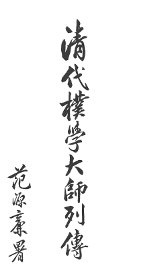 清代樸學大師列傳
范源廉署